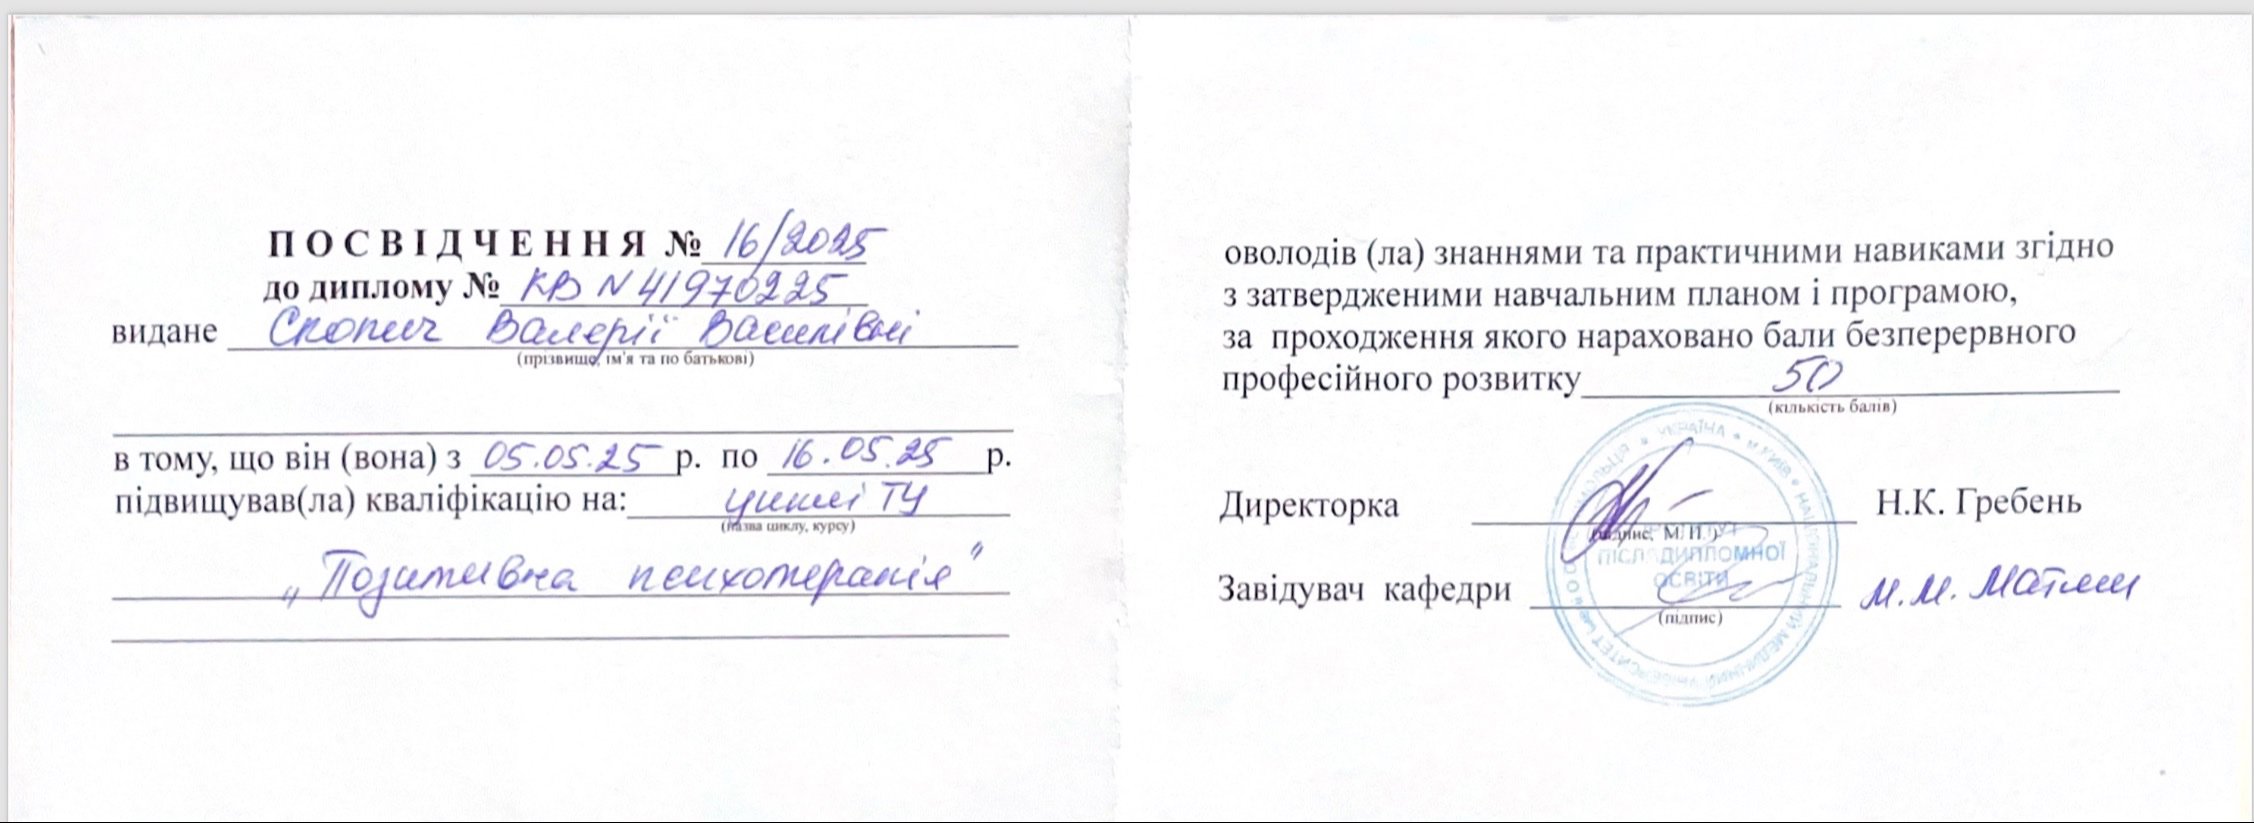 ПОСВІДЧЕННЯ № 16/2025
до диплому № КВ N 41970225
видане Скопич Валерії Василівні
(прізвище, ім'я та по батькові)
в тому, що він (вона) з 05.05.25 р. по 16.05.25 р.
підвищував(ла) кваліфікацію на: циклі ТУ
(назва циклу, курсу)
„Позитивна психотерапія"
оволодів (ла) знаннями та практичними навиками згідно
з затвердженими навчальним планом і програмою,
за проходження якого нараховано бали безперервного
професійного розвитку 50
(кількість балів)
Директорка Н.К. Гребень
(підпис, М.П.)
Завідувач кафедри М.М. Матлак
(підпис)
УКРАЇНА * м.КИЇВ * НАЦІОНАЛЬНИЙ МЕДИЧНИЙ УНІВЕРСИТЕТ
ІНСТИТУТ
ПІСЛЯДИПЛОМНОЇ
ОСВІТИ